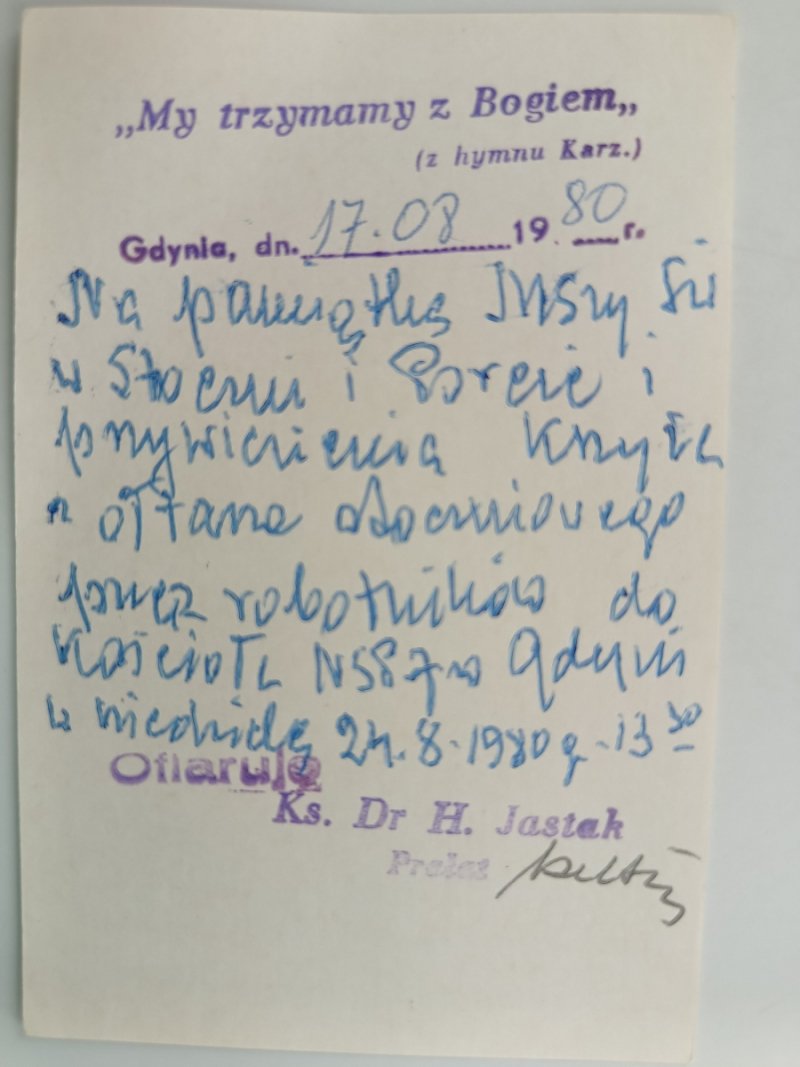 „My trzymamy z Bogiem„
(z hymnu Karz.)
Gdynia, dn. 17.08 1980 r.
Na pamiątkę Mszy Św
w Stoczni i Porcie i
przywiezienia Krzyża
z ołtarza stoczniowego
przez robotników do
Kościoła NSPJ w Gdyni
w niedzielę 24.8.1980 g. 13 30
Ofiaruję
Ks. Dr H. Jastak
Prałat